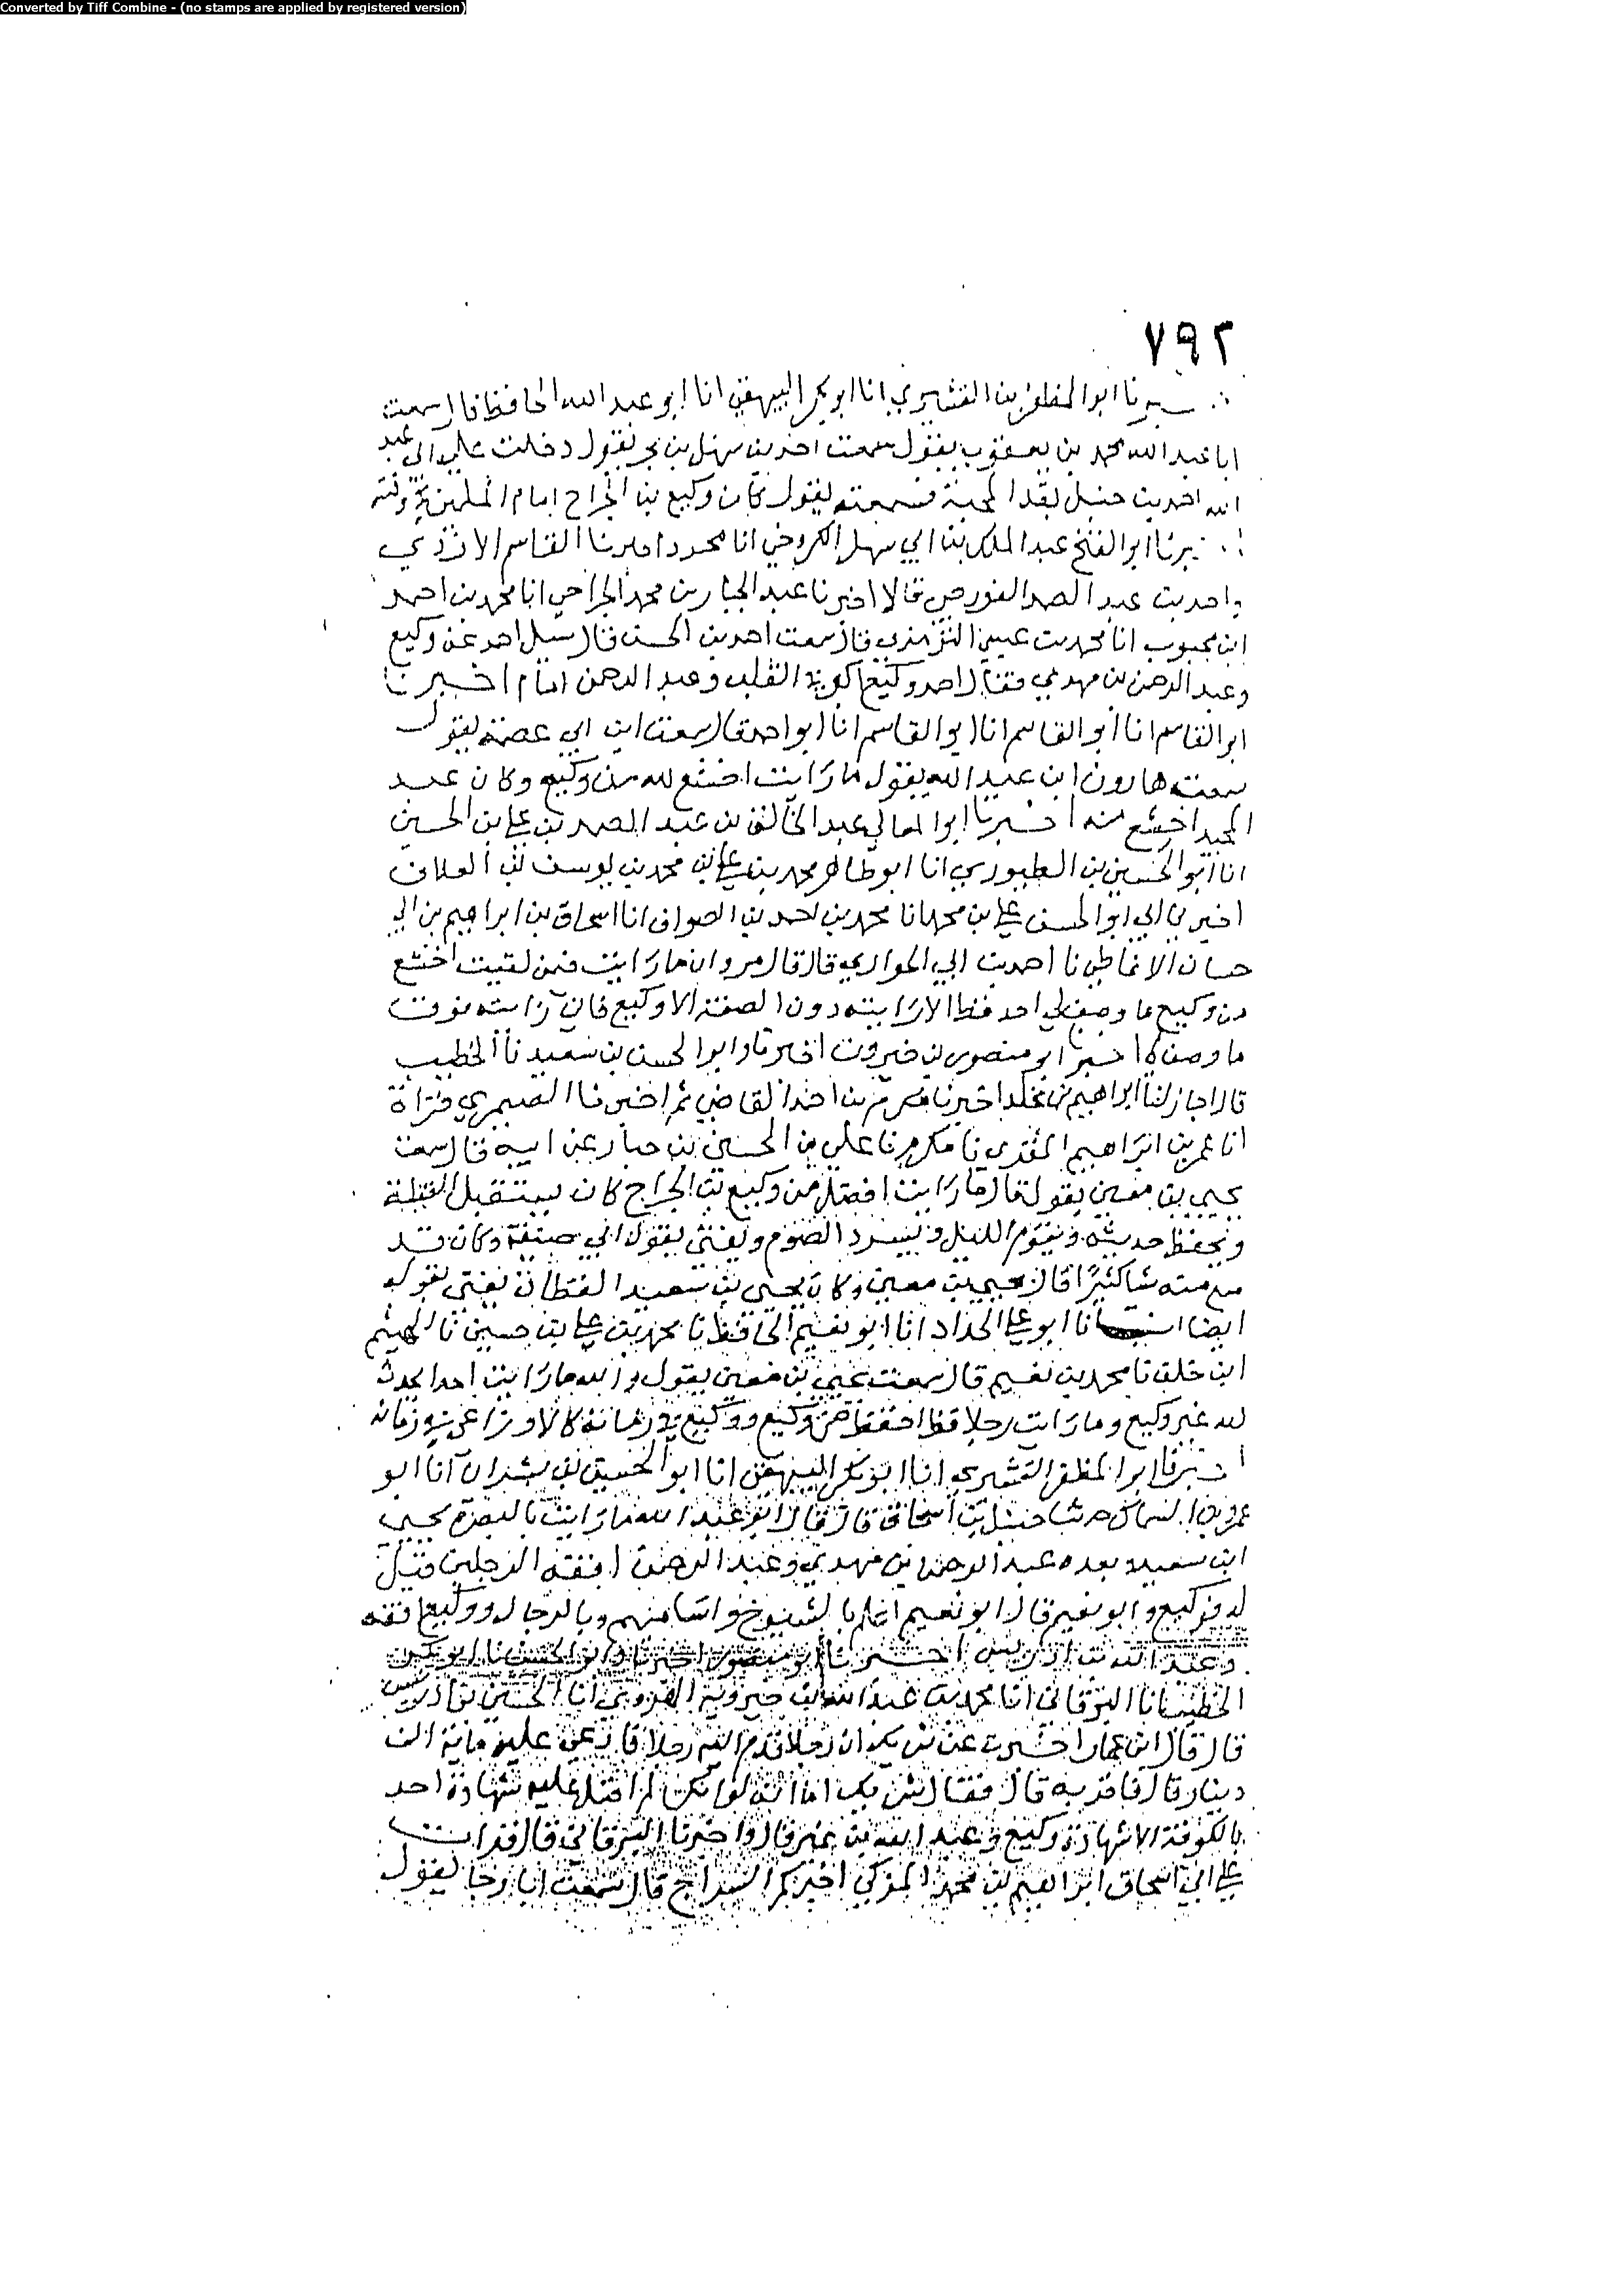 Converted by Tiff Combine - (no stamps are applied by registered version)
٧٩٢
ـبرنا ابوا المظفر بن القشيري انا ابو بكر البيهقي انا ابو عبد الله الحافظ قال سمعت
ابا عبد الله محمد بن يعقوب يقول سمعت احمد بن سهل بن بحر يقول دخلت على ابي عبد
الله احمد بن حنبل بعد المحنة فسمعته يقول كان وكيع بن الجراح امام المسلمين في وقته
ـبرنا ابو الفتح عبد الملك بن ابي سهل الكروخي انا محمود اخبرنا القاسم الازدي
واحمد بن عبد الصمد الغورجي قالا اخبرنا عبد الجبار بن محمد الجراحي انا محمد بن احمد
ابن محبوب انا محمد بن عيسى الترمذي قال سمعت احمد بن الحسن قال سئل احمد عن وكيع
وعبد الرحمن بن مهدي فقال احمد وكيع اكبر في القلب وعبد الرحمن امام اخبرنا
ابو القاسم انا ابو القاسم انا ابو القاسم انا ابو احمد قال سمعت ابن ابي عصمة يقول
سمعت هارون ابن عبد الله يقول ما رايت اخشع لله من وكيع وكان عبد
المجيد اخشع منه اخبرنا ابو المعالي عبد الخالق بن عبد الصمد بن علي بن الحسين
انا ابو الحسين بن الطيوري انا ابو طاهر محمد بن علي بن محمد بن يوسف بن العلاف
اخبرني ابي ابو الحسن علي بن محمد انا محمد بن احمد بن الصواف انا اسحاق بن ابراهيم بن ابي
حسان الانماطي نا احمد بن ابي الحواري قال قال مروان ما رايت فيمن لقيت اخشع
من وكيع ما وصف لي احد قط الا رايته دون الصفة الا وكيع فاني رايته فوق
ما وصف لي اخبرنا ابو منصور بن خيرون اخبرنا وابو الحسن بن سعيد نا الخطيب
قال اجاز لنا ابراهيم بن مخلد اخبرنا مكرم بن احمد القاضي ثم اخبرنا الصيمري قراة
انا عمر بن ابراهيم المقري نا مكرم نا علي بن الحسين بن حبار عن ابيه قال سمعت
يحيى بن معين يقول قال ما رايت افضل من وكيع بن الجراح كان يستقبل القبلة
ويحفظ حديثه ويقوم الليل ويسرد الصوم ويفتي بقول ابي حنيفة وكان قد
سمع منه شيا كثيرًا قال يحيى بن معين وكان يحيى بن سعيد القطان يفتي بقوله
ايضا انبانا ابو علي الحداد انا ابو نعيم الحافظ نا محمد بن علي بن حسين نا الهيثم
ابن خلف نا محمد بن نعيم قال سمعت يحيى بن معين يقول والله ما رايت احدا يحدث
لله غير وكيع وما رايت رجلا قط احفظ من وكيع ووكيع في زمانه كالاوزاعي في زمانه
اخبرنا ابو المظفر القشيري انا ابو بكر البيهقي انا ابو الحسين بن بشران انا ابو
عمرو بن السماك حدثنا حنبل بن اسحاق قال قال ابو عبد الله ما رايت بالبصرة يحيى
ابن سعيد بعده عبد الرحمن بن مهدي وعبد الرحمن افقه الرجلين قيل
له فوكيع وابو نعيم قال ابو نعيم اعلم بالشيوخ واسامهم وبالرجال ووكيع افقه
وعبد الله بن ادريس اخبرنا ابو منصور اخبرنا وابو الحسن نا ابو بكر
الخطيب انا البرقاني انا محمد بن عبد الله بن خميرويه الهروي انا الحسين بن ادريس
قال قال ابن عمار اخبرت عن شريك ان رجلا قدم اليه رجلا فادعى عليه مائة الف
دينار قال فاقر به قال فقال شريك اما انه لو انكر لم اقبل عليه شهادة احد
بالكوفة الا شهادة وكيع وعبد الله بن نمير قال واخبرنا البرقاني قال قرات
على ابي اسحاق ابراهيم بن محمد المزكي اخبركم السراج قال سمعت ابا رجا يقول